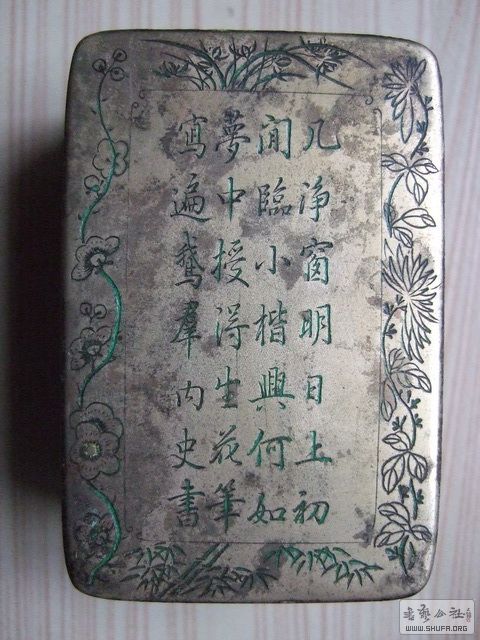 几淨窗明日上初
閒臨小楷興何如
夢中授得生花筆
寫遍鵞羣內史書
書藝公社
www.SHUFA.ORG